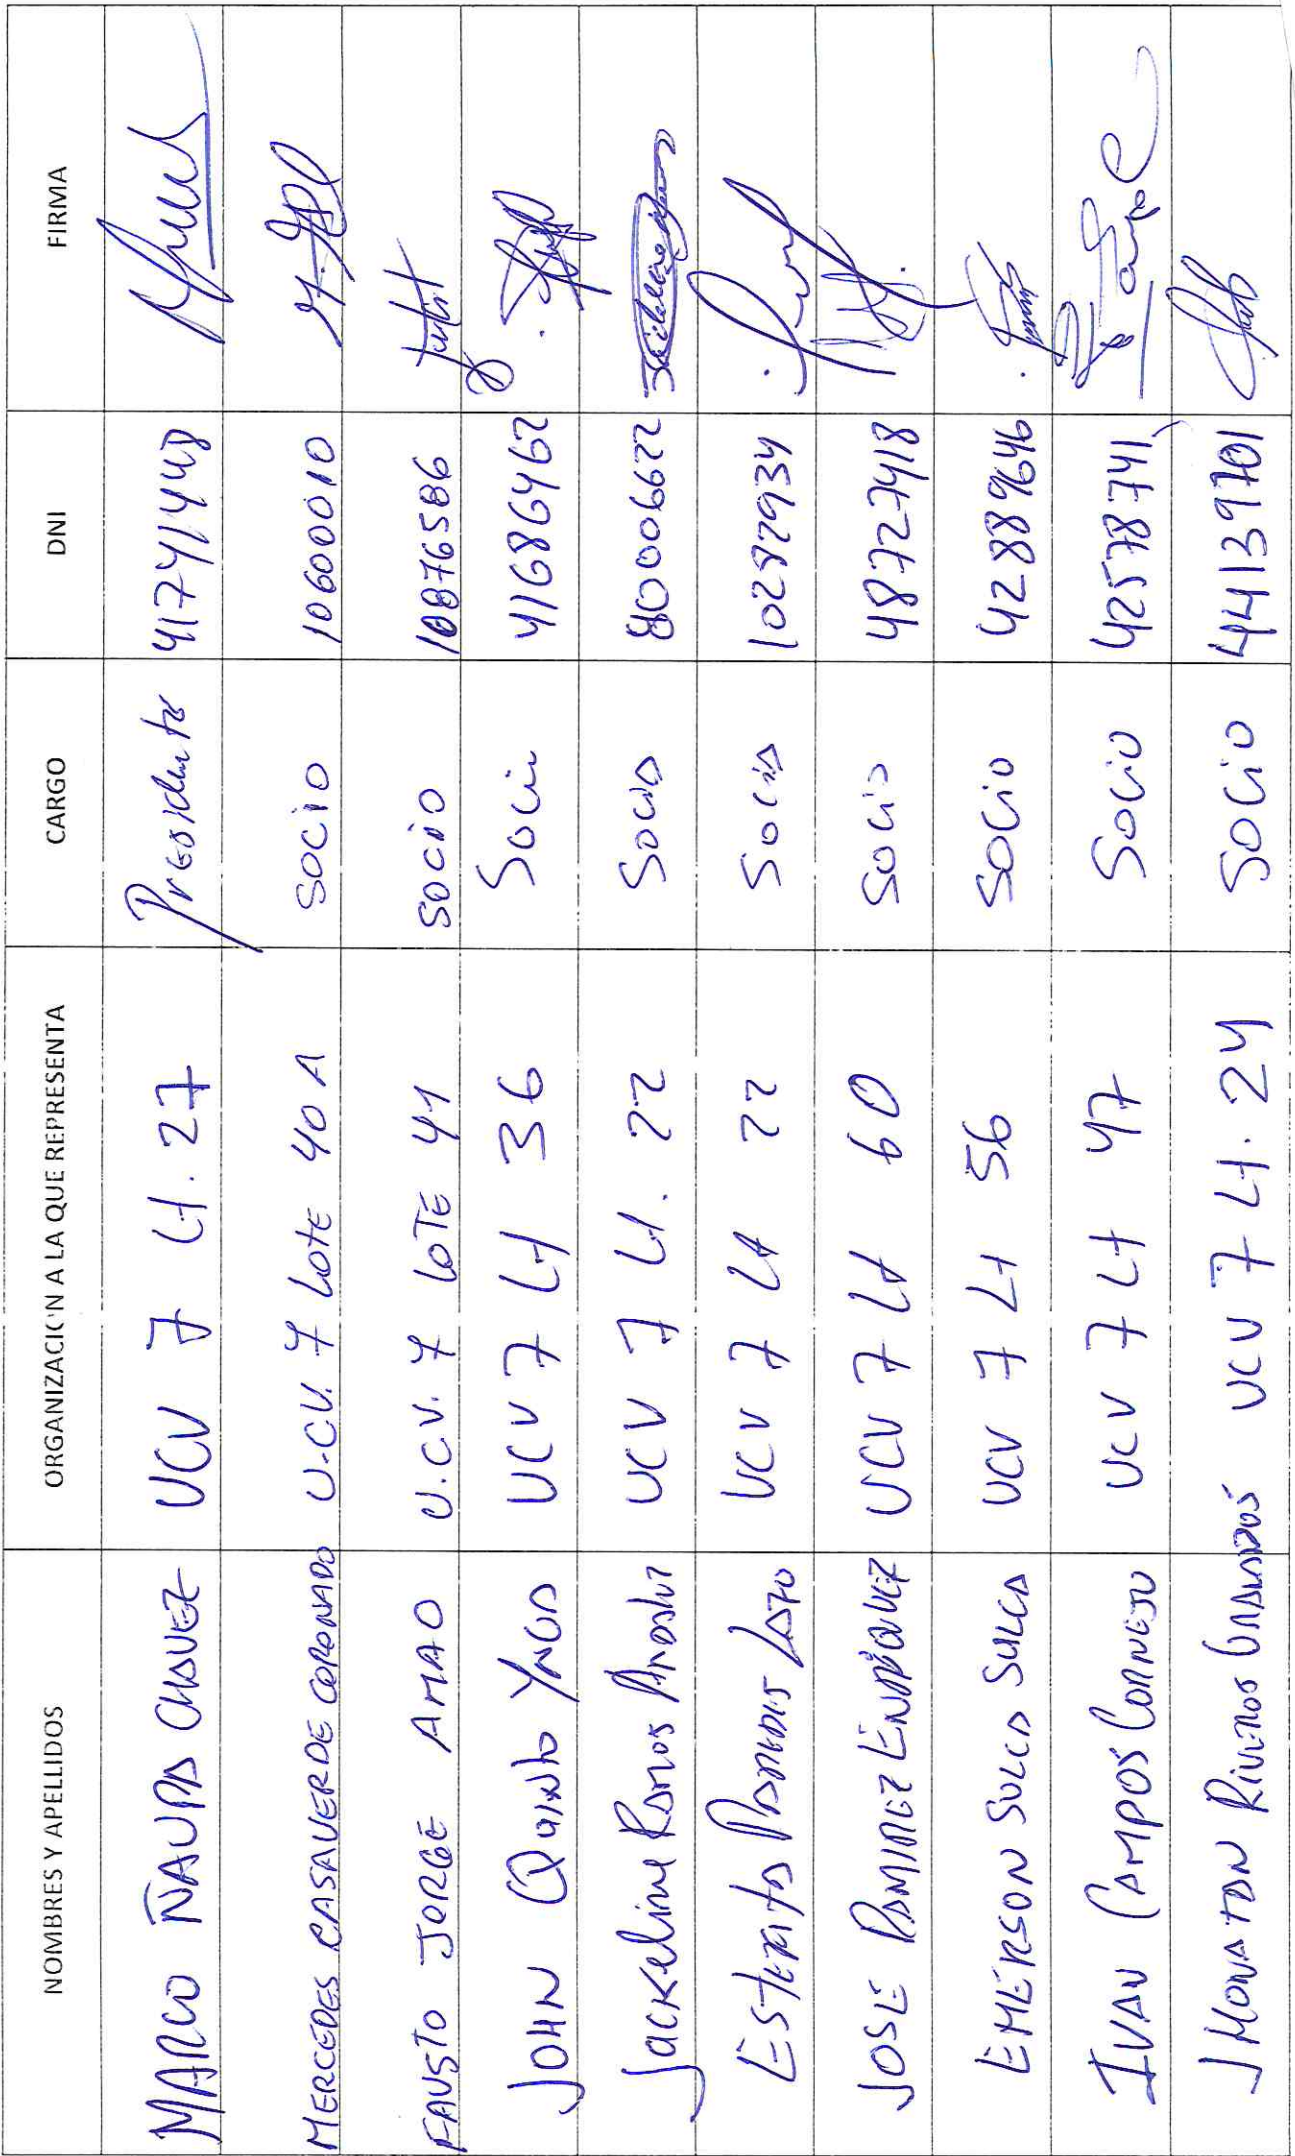 NOMBRES Y APELLIDOS ORGANIZACION A LA QUE REPRESENTA CARGO DNI FIRMA
MARCO ÑAUPA CHAVEZ UCV 7 Lt. 27 Presidente 41741448
MERCEDES CASAVERDE CORONADO U.CV. 7 LotE 40 A SOCIO 10600010
FAUSTO JORGE AMAO U.C.V. 7 LOTE 41 SOCIO 10876586
JOHN Quinto YNGA UCV 7 Lt 36 Socio 41686462
Jackeline Ramos UCV 7 Lt. 22 Socia 80006622
Estefita Paredes Lazo UCV 7 Lt 22 Socia 10282934
JOSE RAMIREZ ENRIQUEZ UCV 7 Lt 60 Socio 48727418
EMERSON SULCA SULCA UCV 7 Lt 56 SOCIO 42889646
IVAN CAMPOS CORNEJO UCV 7 Lt 47 SOCIO 42578741
JHONATAN Riveros UCV 7 Lt. 24 SOCIO 44139701